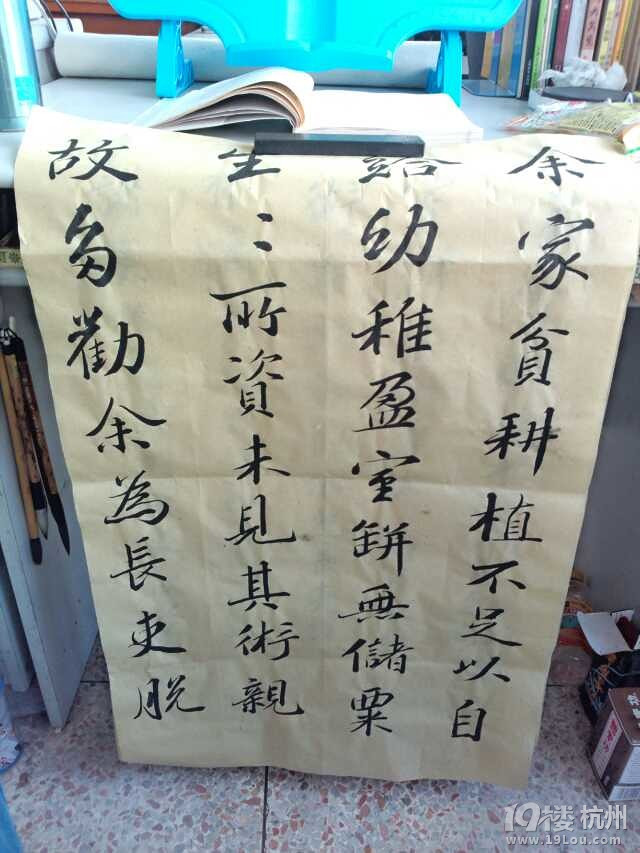 余家貧耕植不足以自
給幼稚盈室缾無儲粟
生〻所資未見其術親
故多勸余為長吏脫
19楼 杭州
www.19Lou.com